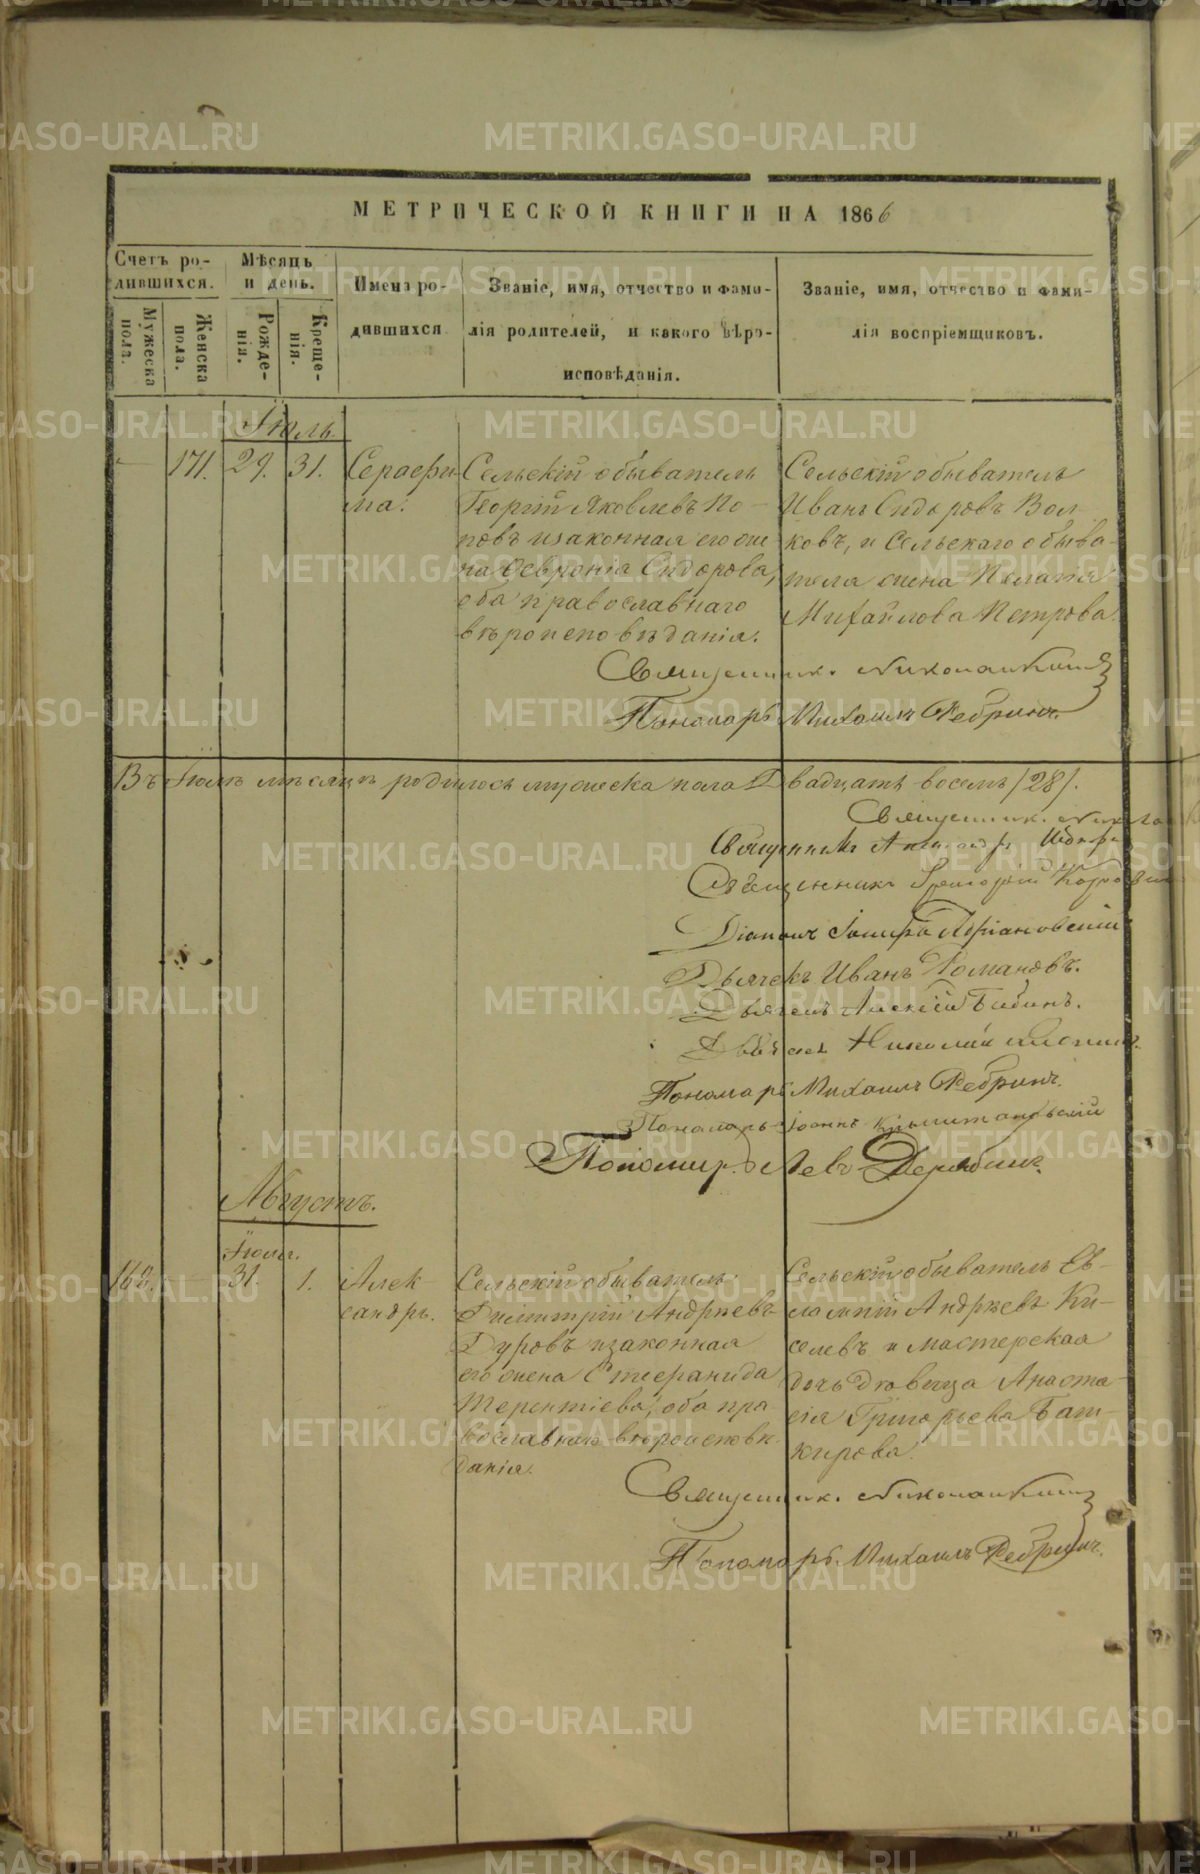 МЕТРИЧЕСКОЙ КНИГИ НА 1866
Счетъ ро-
дившихся.
Мужеска пола.
Женска пола.
Мѣсяць
и день.
Рожде-
нія.
Креще-
нія.
Имена ро-
дившихся
Званіе, имя, отчество и фами-
лія родителей, и какого вѣро-
исповѣданія.
Званіе, имя, отчество и фами-
лія воспріемщиковъ.
Іюль
171. 29. 31.
Серафи-
ма.
Сельскій обыватель
Георгій Яковлевъ По-
повъ изаконная его же-
на Февронія Сидорова,
оба православнаго
вѣроисповѣданія.
Сельскій обыватель
Иванъ Сидоровъ Вол-
ковъ, и Сельскаго обыва-
теля жена Пелагія
Михайлова Петрова.
Священник.
Пономарь Михаилъ Ребринъ.
Въ Іюлѣ мѣсяцѣ родилось мужеска пола Двадцать восемь /28/.
Священник.
Священникъ
Священникъ Григорій
Діаконъ Адріановскій
Дьячекъ Иванъ Романовъ.
Дьячекъ Алексій Бабинъ.
Дьячекъ Николай
Пономарь Михаилъ Ребринъ.
Пономарь Іоаннъ
Пономарь Левъ Дерябинъ.
Августъ.
Іюля.
31. 1.
Алек-
сандръ.
Сельскій обыватель
Димитрій Андреевъ
Дуровъ изаконная
его жена Стефанида
Терентіева, оба пра-
вославнаго вѣроисповѣ-
данія.
Сельскій обыватель Ев-
лампій Андреевъ Ки-
селевъ и мастерская
дочь дѣвица Анаста-
сія Григорьева Баш-
кирова.
Священник.
Пономарь Михаилъ Ребринъ.
METRIKI.GASO-URAL.RU